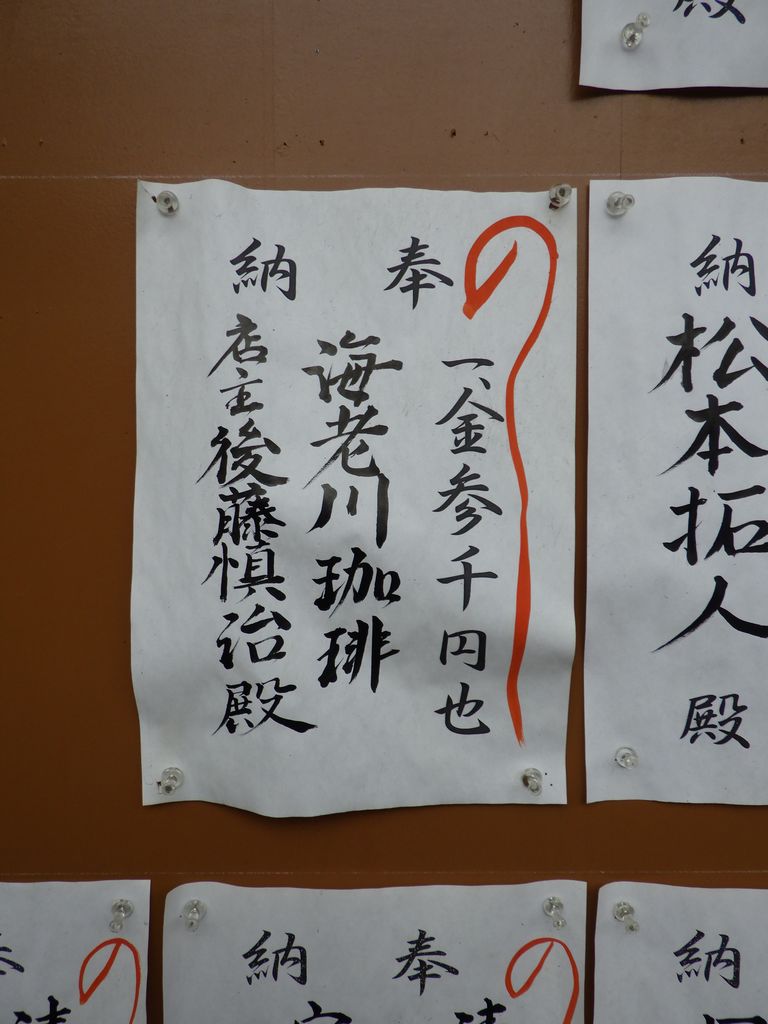 奉納
一、金参千円也
海老川珈琲
店主後藤慎治殿
納
松本拓人殿
殿
納
奉
納